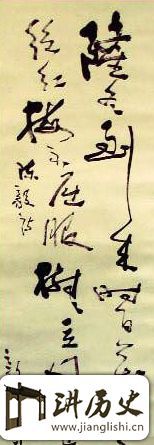 隆冬到来时百花
绝红梅不屈服樹々立风
陈毅诗
讲历史
www.jianglishi.cn